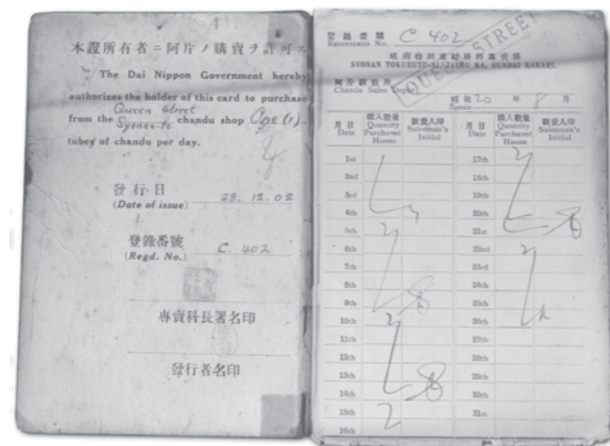 本證所有者ニ阿片ノ購賣ヲ許可ス
The Dai Nippon Government hereby
authorizes the holder of this card to purchase
Queen Street
from the Syonan-to chandu shop One (1)
tubes of chandu per day.
發行日
(Date of issue) 28. 12. 02
登錄番號
(Regd. No.) C. 402
專賣科長署名印
發行者名印
登錄番號
REGISTERED No. C 402
QUEEN STREET
SYONAN TOKUBETU-SI, ZAIMU KA, SENBAI KAKARI.
Chandu Sales Depot
昭和 20 年 8 月
Syowa
月日 購入數量 販賣人印 月日 購入數量 販賣人印
Date Quantity Purchased Hoons Salesman's Initial Date Quantity Purchased Hoons Salesman's Initial
1st 17th 2
2nd 18th
3rd 19th
4th 20th
5th 2 21st
6th 22nd 2
7th 23rd
8th 24th
9th 25th
10th 2 26th
11th 27th
12th 28th
13th 29th
14th 30th
15th 2 31st
16th